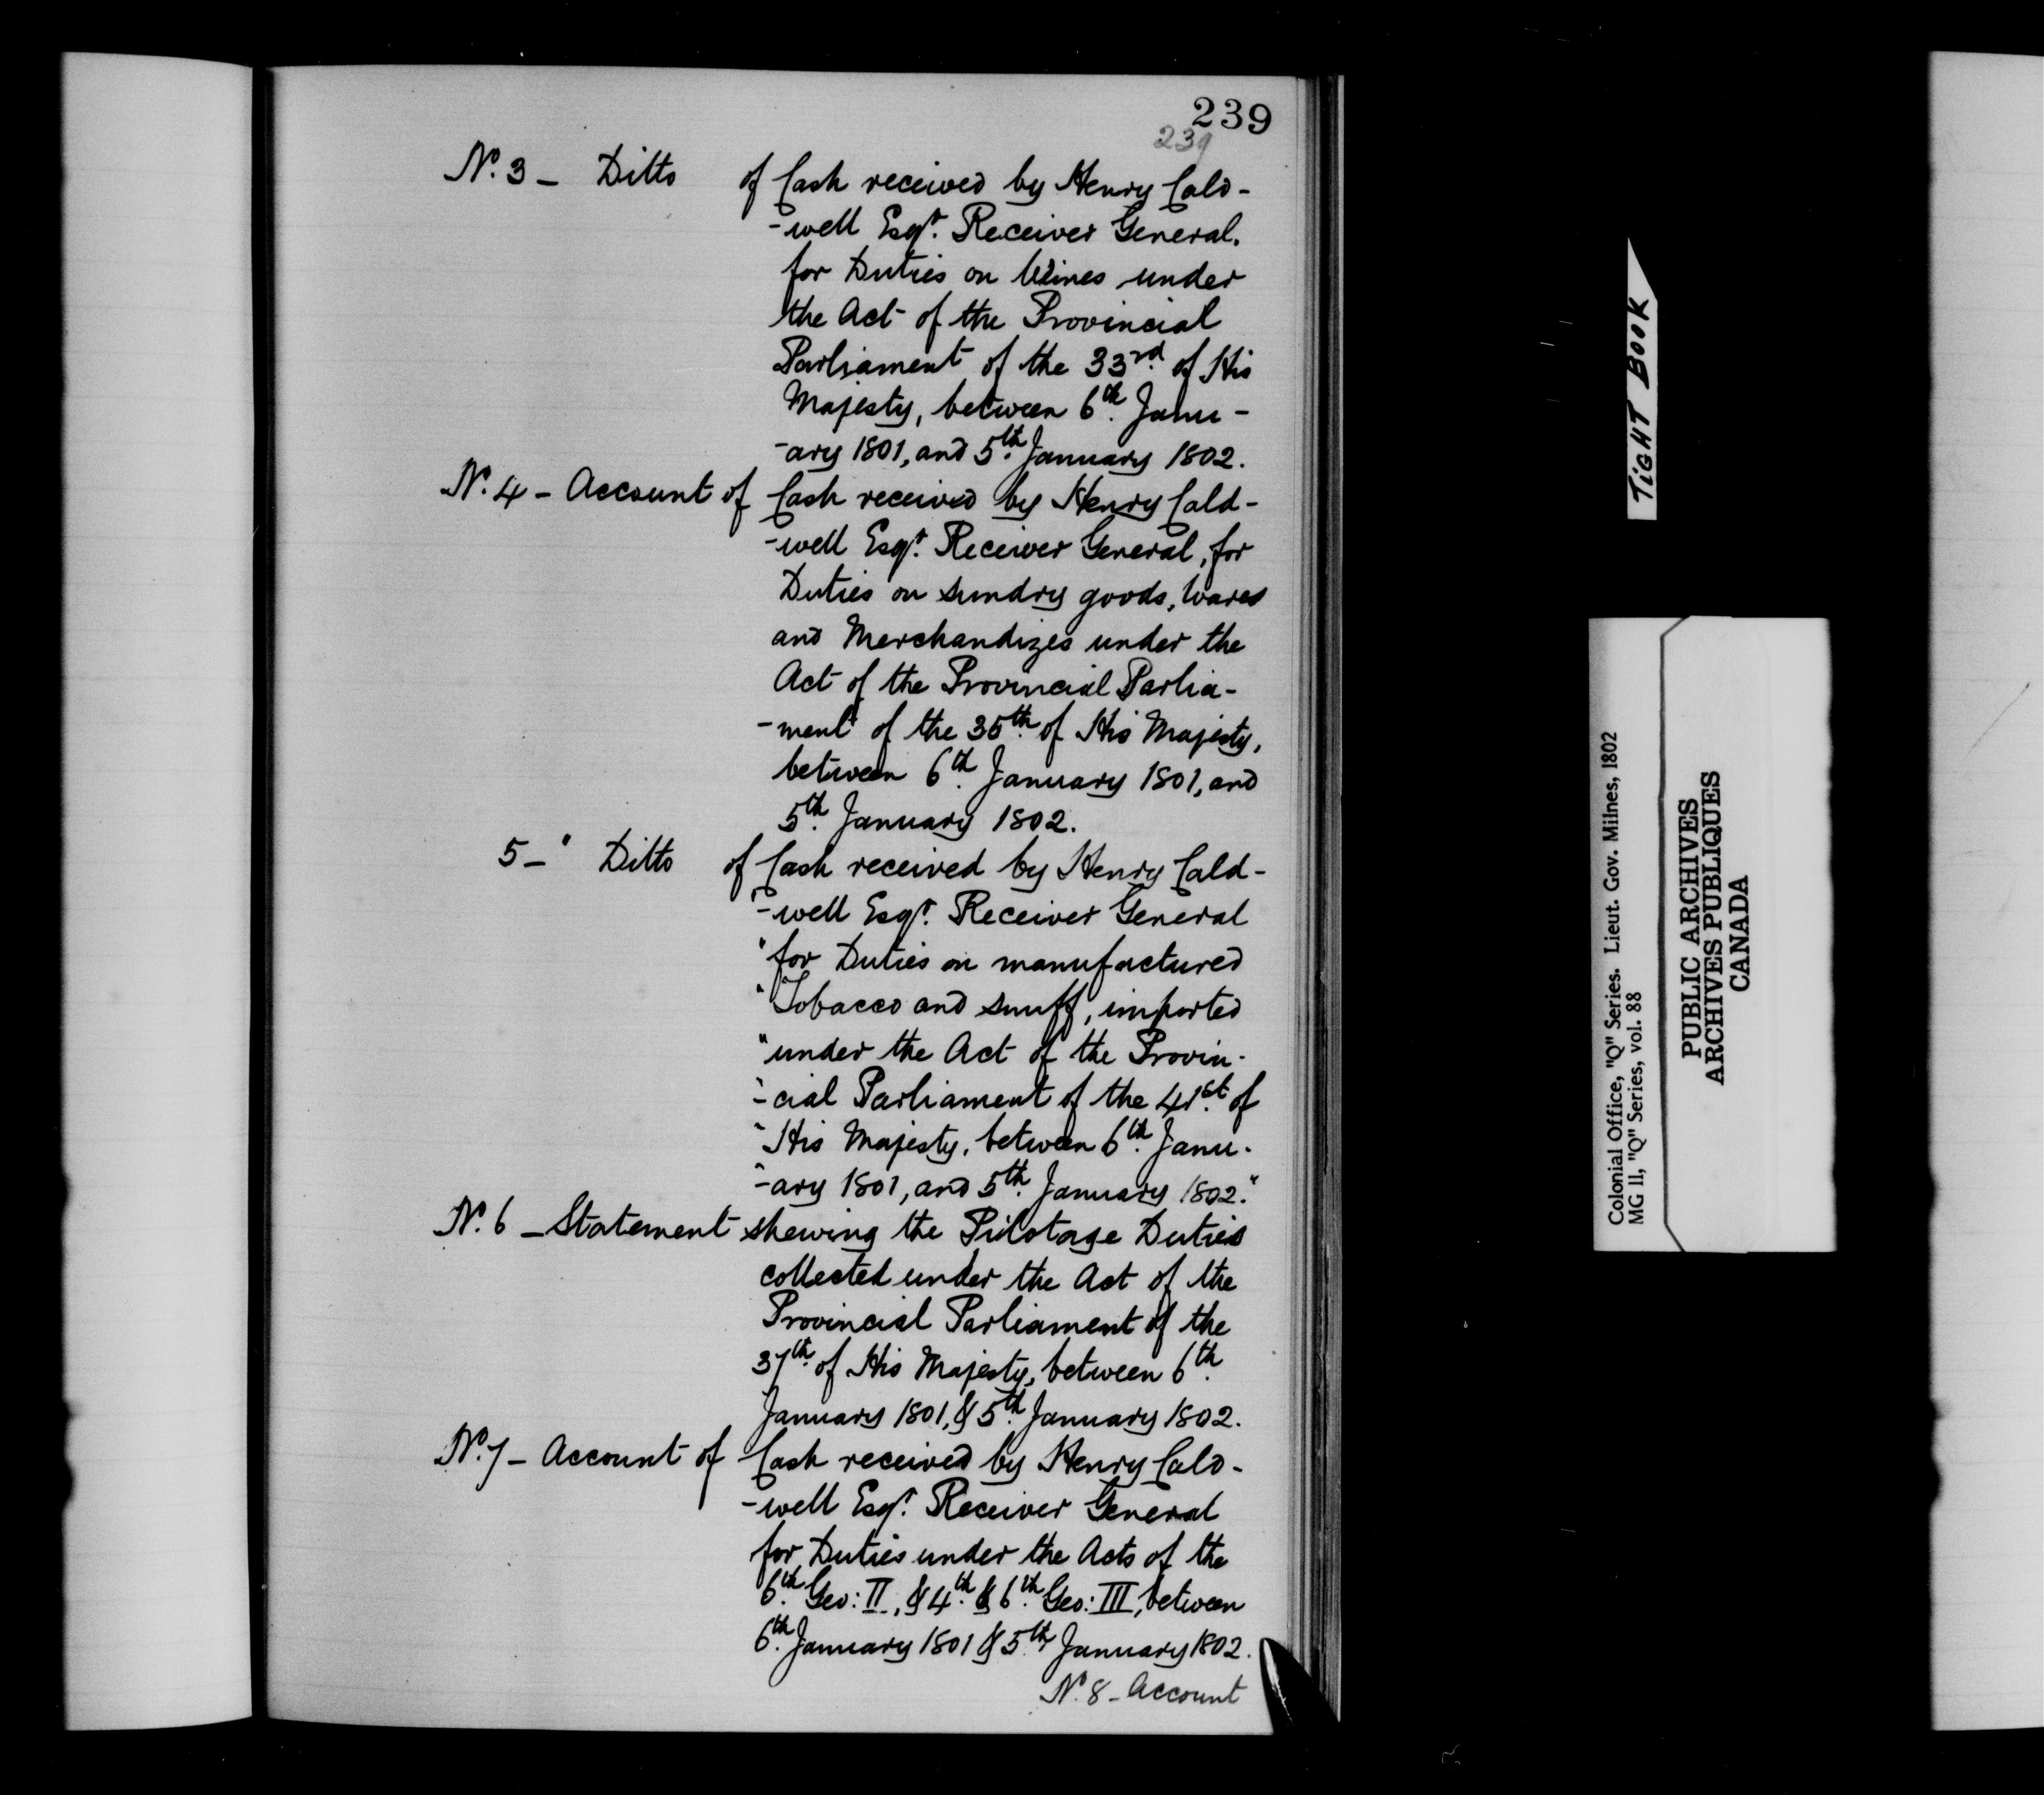 239
239
No. 3 - Ditto of Cash received by Henry Cald-
-well Esqr. Receiver General,
for Duties on Wines under
the Act of the Provincial
Parliament of the 33rd. of His
Majesty, between 6th. Janu-
-ary 1801, and 5th. January 1802.
No. 4 - Account of Cash received by Henry Cald-
-well Esqr. Receiver General, for
Duties on sundry goods, Wares
and Merchandizes under the
Act of the Provincial Parlia-
-ment of the 35th. of His Majesty,
between 6th. January 1801, and
5th. January 1802.
5 - " Ditto of Cash received by Henry Cald-
"-well Esqr. Receiver General
"for Duties on manufactured
"Tobacco and snuff, imported
"under the Act of the Provin-
"-cial Parliament of the 41st. of
"His Majesty, between 6th. Janu-
"-ary 1801, and 5th. January 1802."
No. 6 - Statement shewing the Pilotage Duties
collected under the Act of the
Provincial Parliament of the
37th. of His Majesty, between 6th.
January 1801, & 5th. January 1802.
No. 7 - Account of Cash received by Henry Cald-
-well Esqr. Receiver General
for Duties under the Acts of the
6th. Geo: II, & 4th. & 6th. Geo: III, between
6th. January 1801 & 5th. January 1802.
No. 8 - Account
TIGHT BOOK
Colonial Office, "Q" Series. Lieut. Gov. Milnes, 1802
MG 11, "Q" Series, vol. 88
PUBLIC ARCHIVES
ARCHIVES PUBLIQUES
CANADA